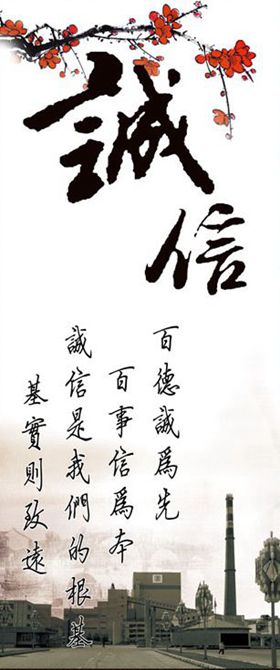 誠信
百德誠爲先
百事信爲本
誠信是我們的根基
基實則致遠